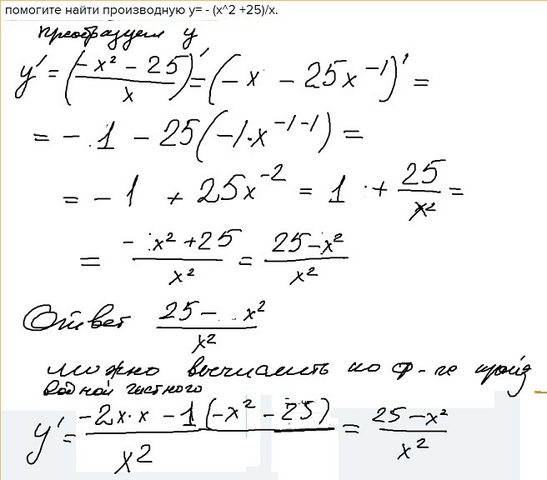 помогите найти производную y= - (x^2 +25)/x.
преобразуем y
y' = (-x² - 25 / x)' = (-x - 25x⁻¹)' =
= - 1 - 25(-1·x⁻¹⁻¹) =
= - 1 + 25x⁻² = 1 + 25/x² =
= -x² + 25 / x² = 25 - x² / x²
Ответ 25 - x² / x²
можно вычислить по ф-ле произ
водной частного
y' = -2x·x - 1(-x² - 25) / x² = 25 - x² / x²